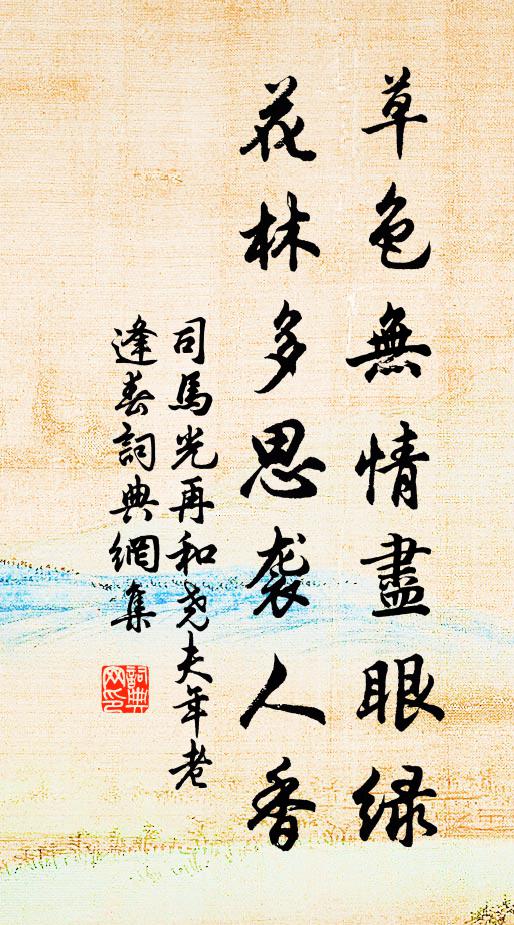 草色無情盡眼緑
花林多思袭人香
司馬光再和尧夫年老
逢春詞典網集
詞典
网印